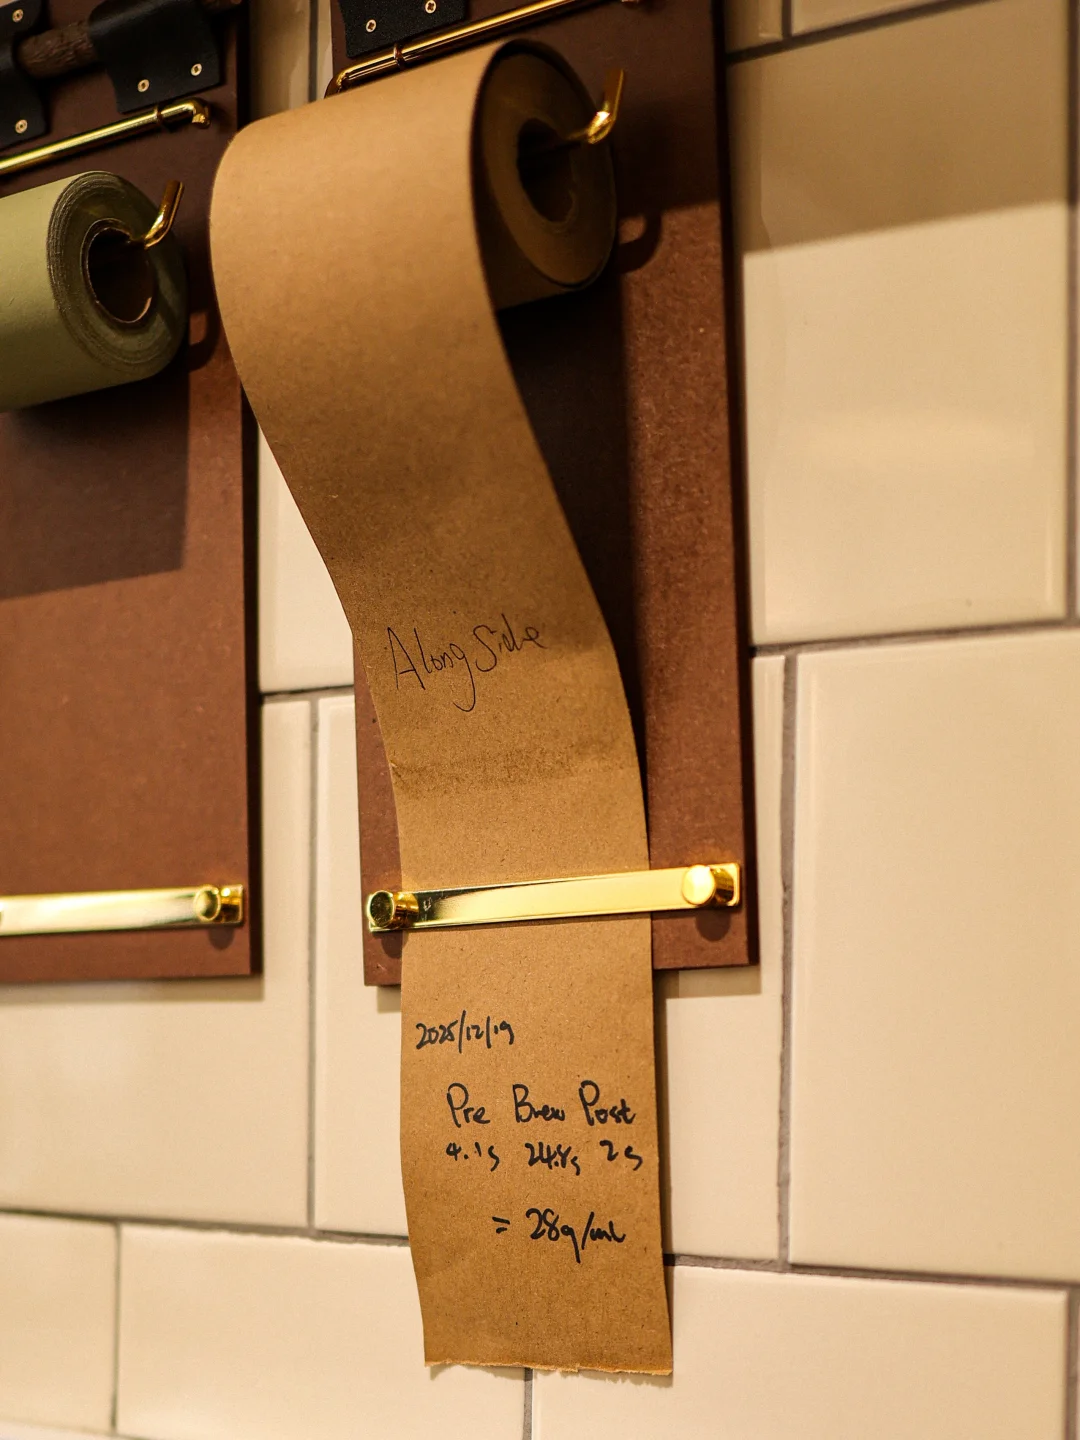 Along Side
2025/12/19
Pre Brew Post
4.1s 24.8s 2s
= 28g/ml